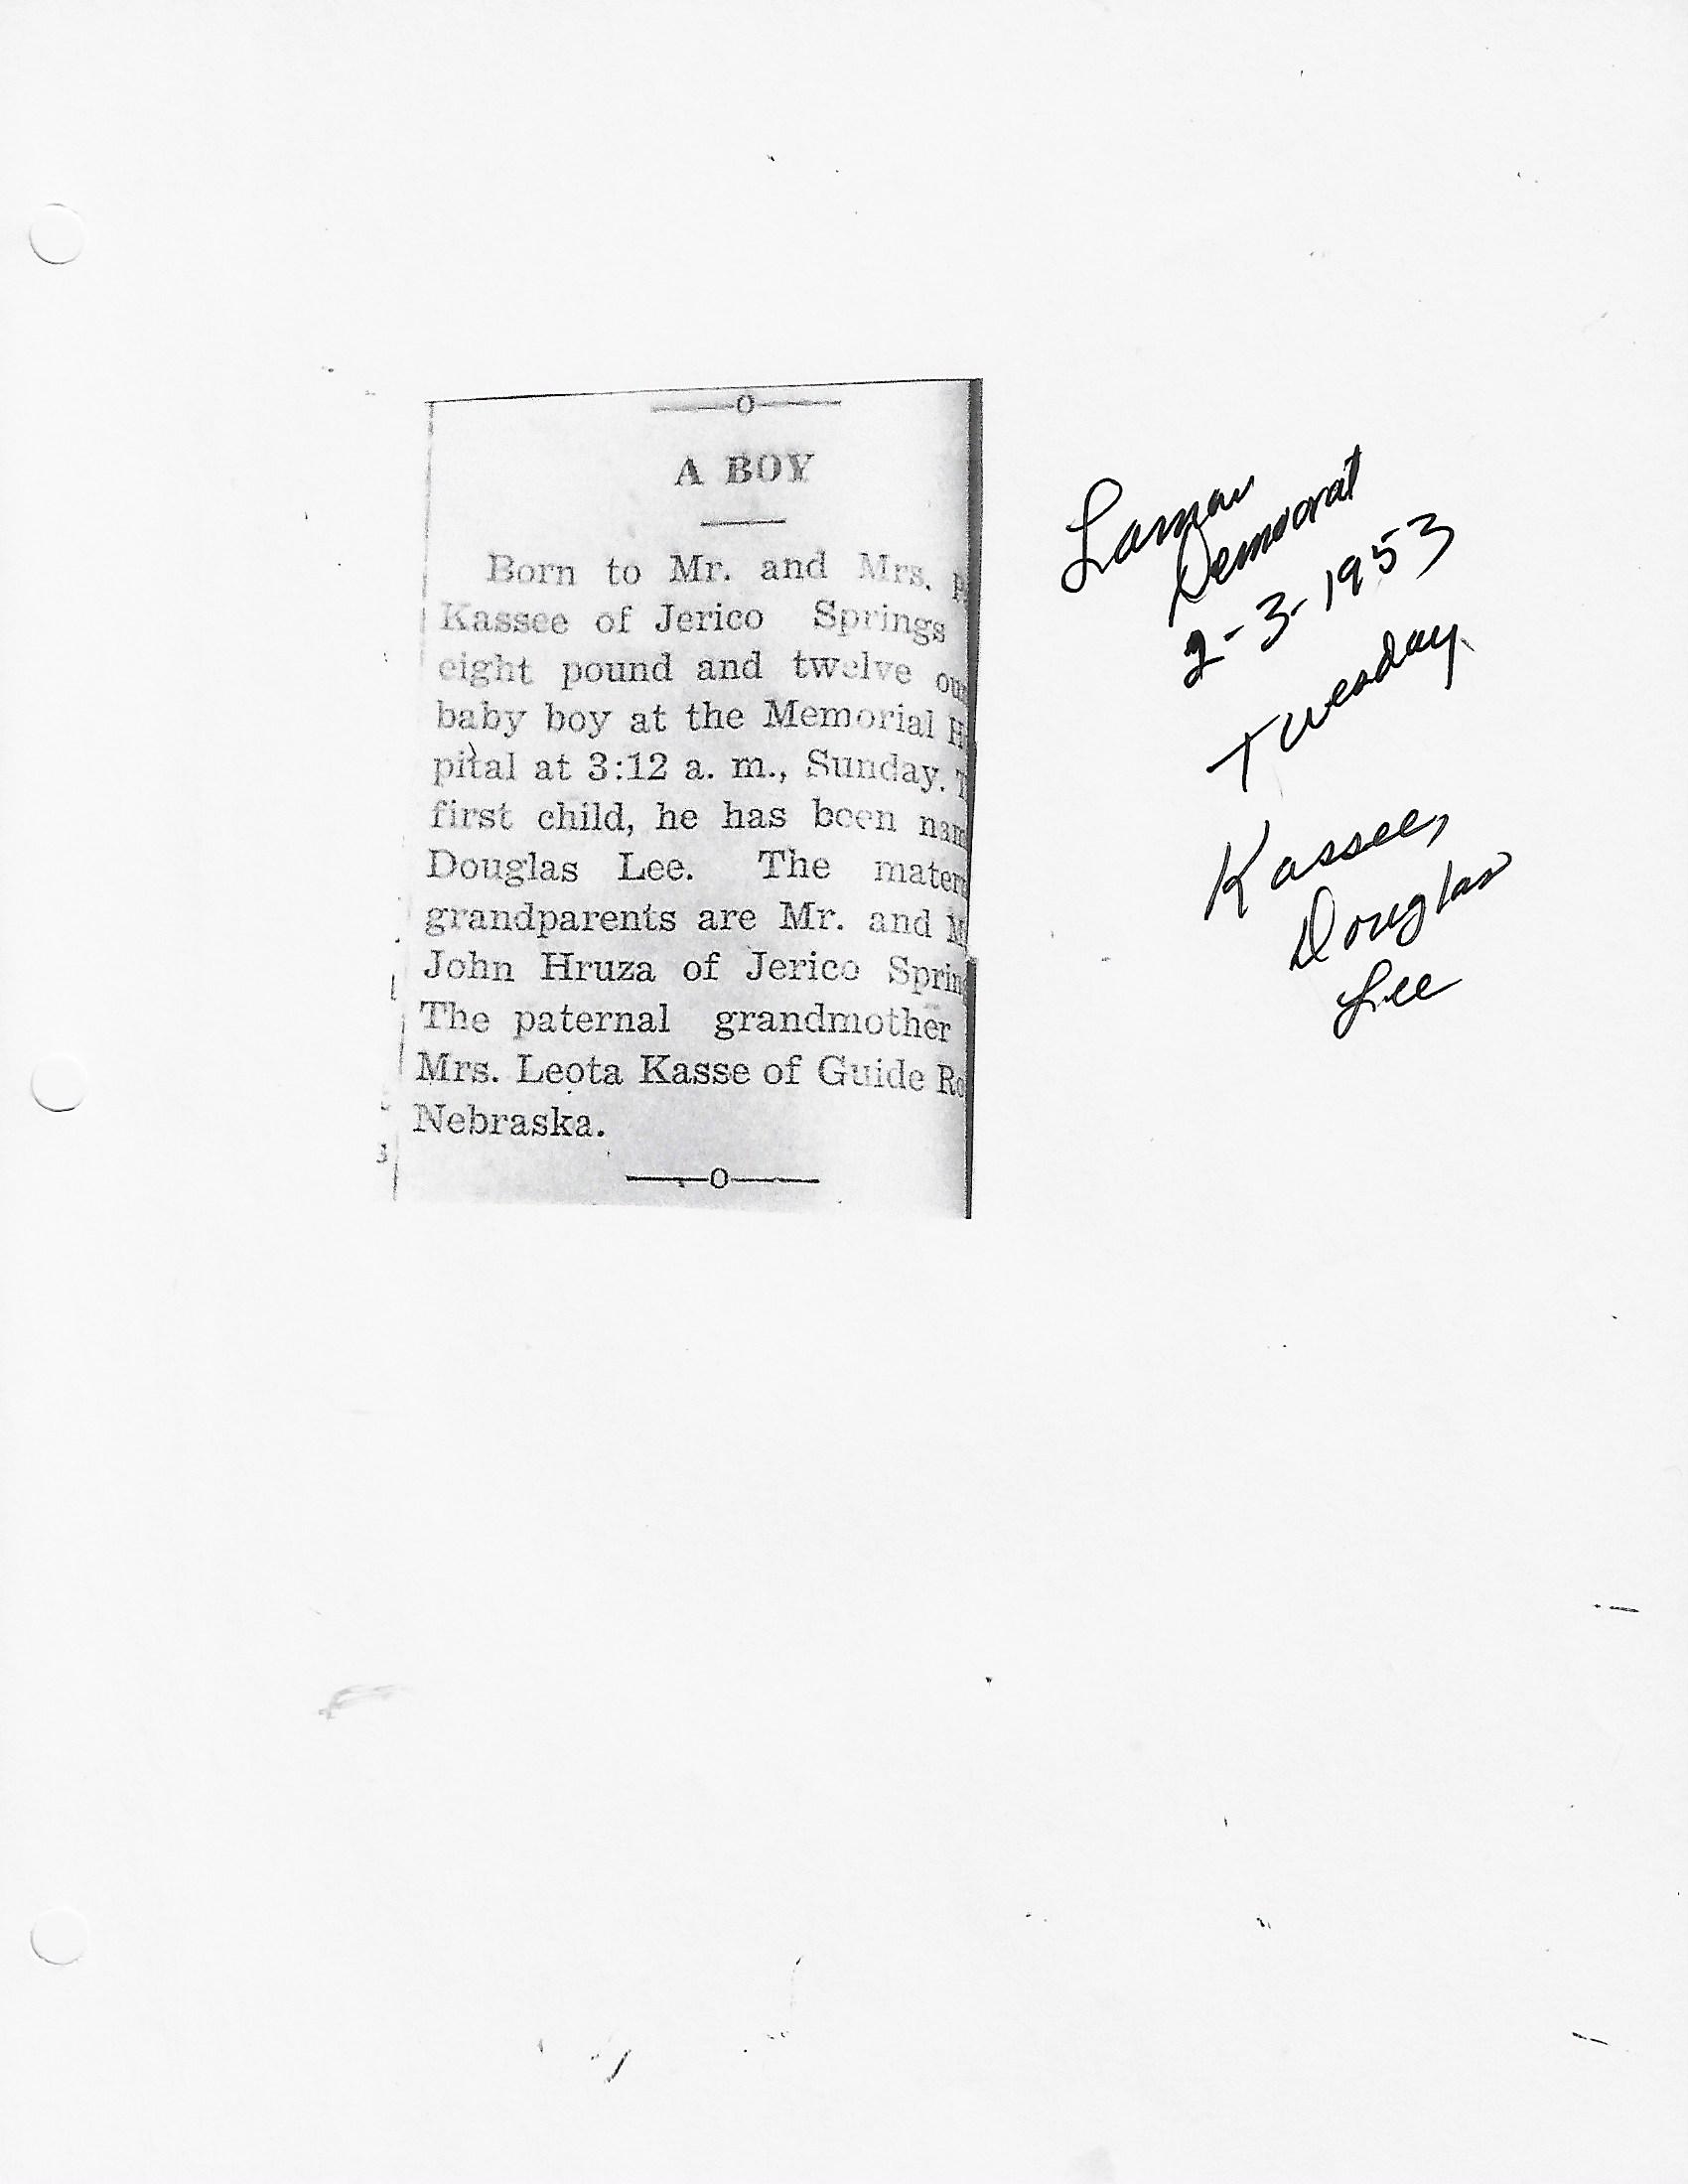 A BOY
Born to Mr. and Mrs.
Kassee of Jerico Springs
eight pound and twelve
baby boy at the Memorial
pital at 3:12 a. m., Sunday.
first child, he has been
Douglas Lee. The
grandparents are Mr. and
John Hruza of Jerico
The paternal grandmother
Mrs. Leota Kasse of Guide
Nebraska.
Lamar
Democrat
2-3-1953
Tuesday
Kassee,
Douglas
Lee